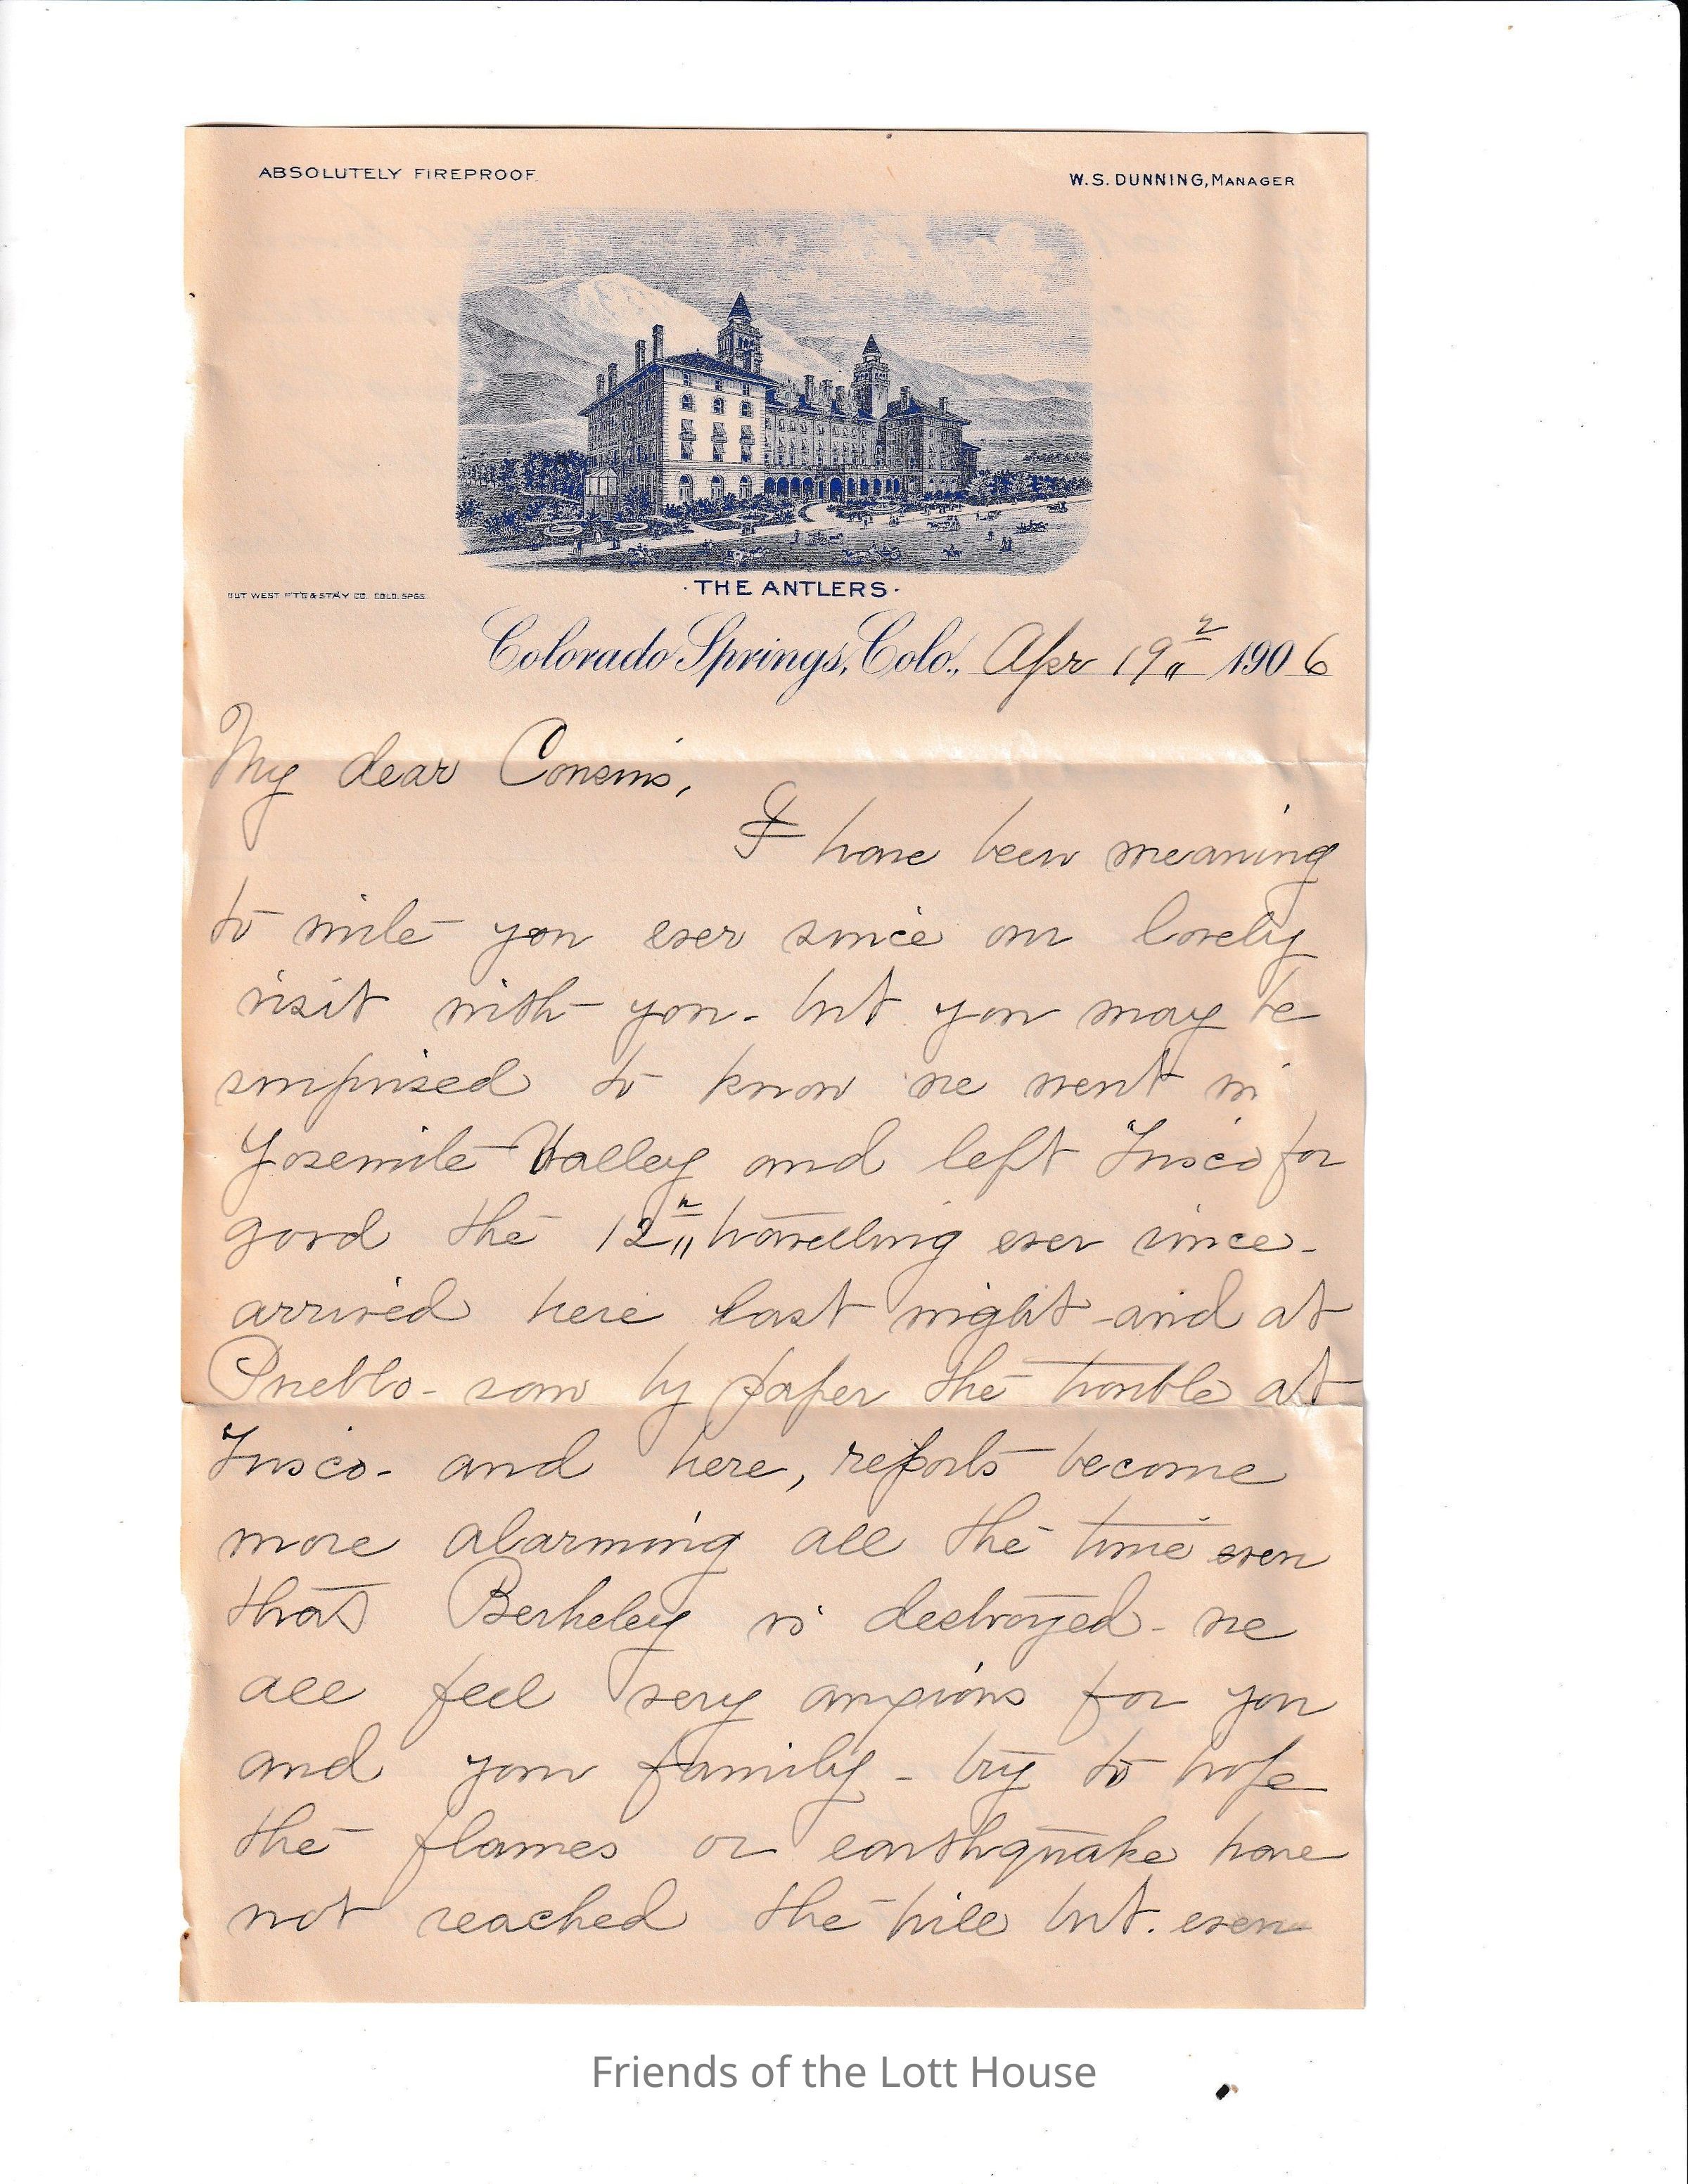 ABSOLUTELY FIREPROOF.
W.S. DUNNING, MANAGER
OUT WEST PT'G & STA'Y CO. COLO. SPGS.
· THE ANTLERS ·
Colorado Springs, Colo., Apr 19" 1906
My dear Cousins,
I have been meaning
to write you ever since our lovely
visit with you - but you may be
surprised to know we went in
Yosemite Valley and left Frisco for
good the 12" travelling ever since -
arrived here last night - and at
Pueblo - saw by paper the trouble at
Frisco - and here, reports become
more alarming all the time even
that Berkeley is destroyed - we
all feel very anxious for you
and your family - try to hope
the flames or earthquake have
not reached the hill but. even
Friends of the Lott House